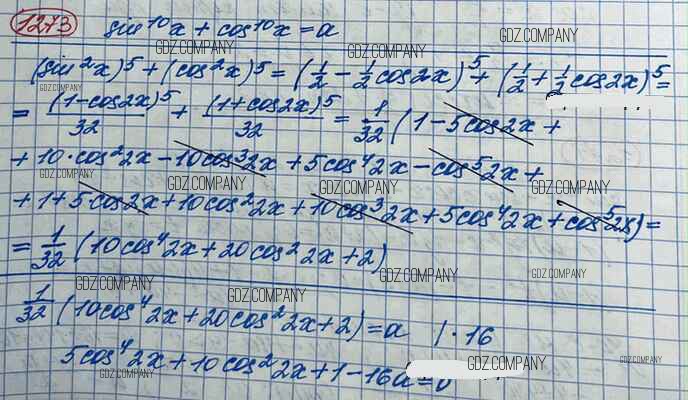 1273 sin¹⁰x + cos¹⁰x = a
GDZ.COMPANY GDZ.COMPANY GDZ.COMPANY
(sin²x)⁵ + (cos²x)⁵ = (1/2 - 1/2 cos2x)⁵ + (1/2 + 1/2 cos2x)⁵ =
GDZ.COMPANY
= (1-cos2x)⁵/32 + (1+cos2x)⁵/32 = 1/32 (1 - 5cos2x +
+ 10·cos²2x - 10cos³2x + 5cos⁴2x - cos⁵2x +
GDZ.COMPANY GDZ.COMPANY GDZ.COMPANY GDZ.COMPANY
+ 1 + 5cos2x + 10cos²2x + 10cos³2x + 5cos⁴2x + cos⁵2x) =
= 1/32 (10cos⁴2x + 20cos²2x + 2)
GDZ.COMPANY GDZ.COMPANY GDZ.COMPANY GDZ.COMPANY
1/32 (10cos⁴2x + 20cos²2x + 2) = a | · 16
5cos⁴2x + 10cos²2x + 1 - 16a = 0
GDZ.COMPANY GDZ.COMPANY GDZ.COMPANY